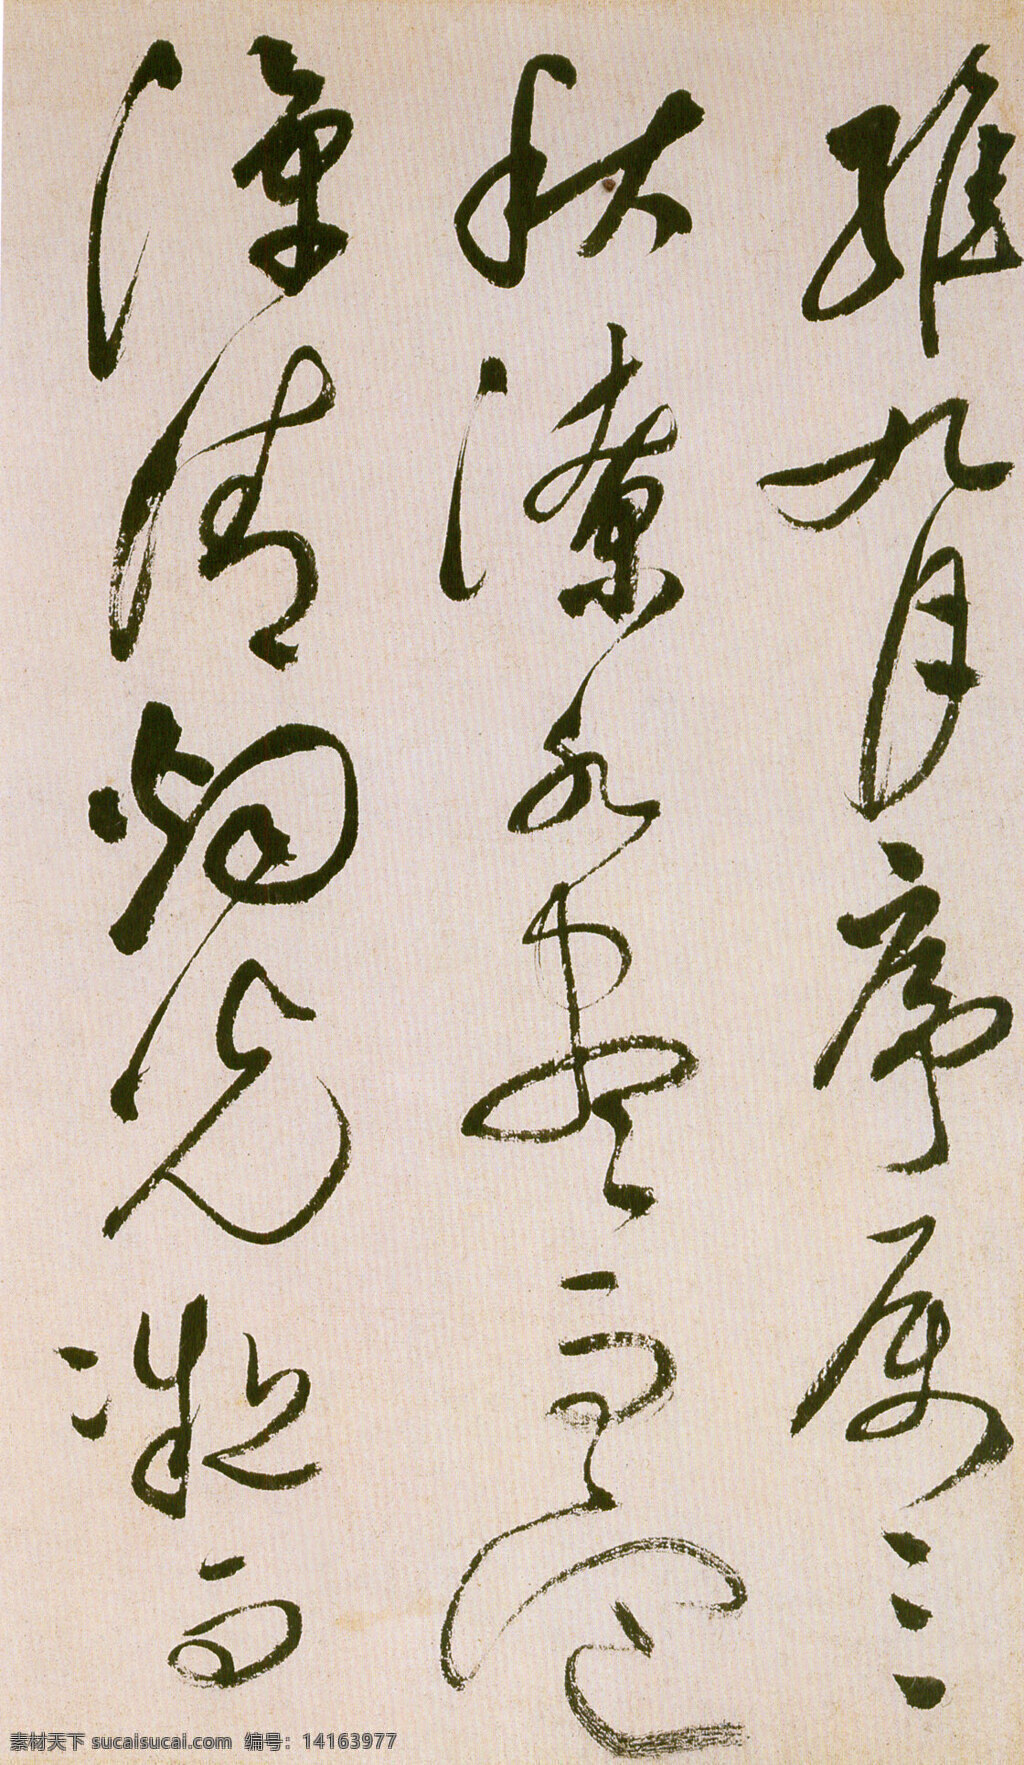 維九月序屬三
秋潦水盡而寒
潭清烟光凝而
素材天下 sucaisucai.com 编号：14163977